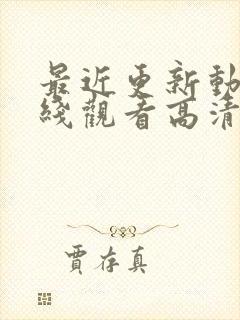 最近更新動
綫觀看高清
賈存真